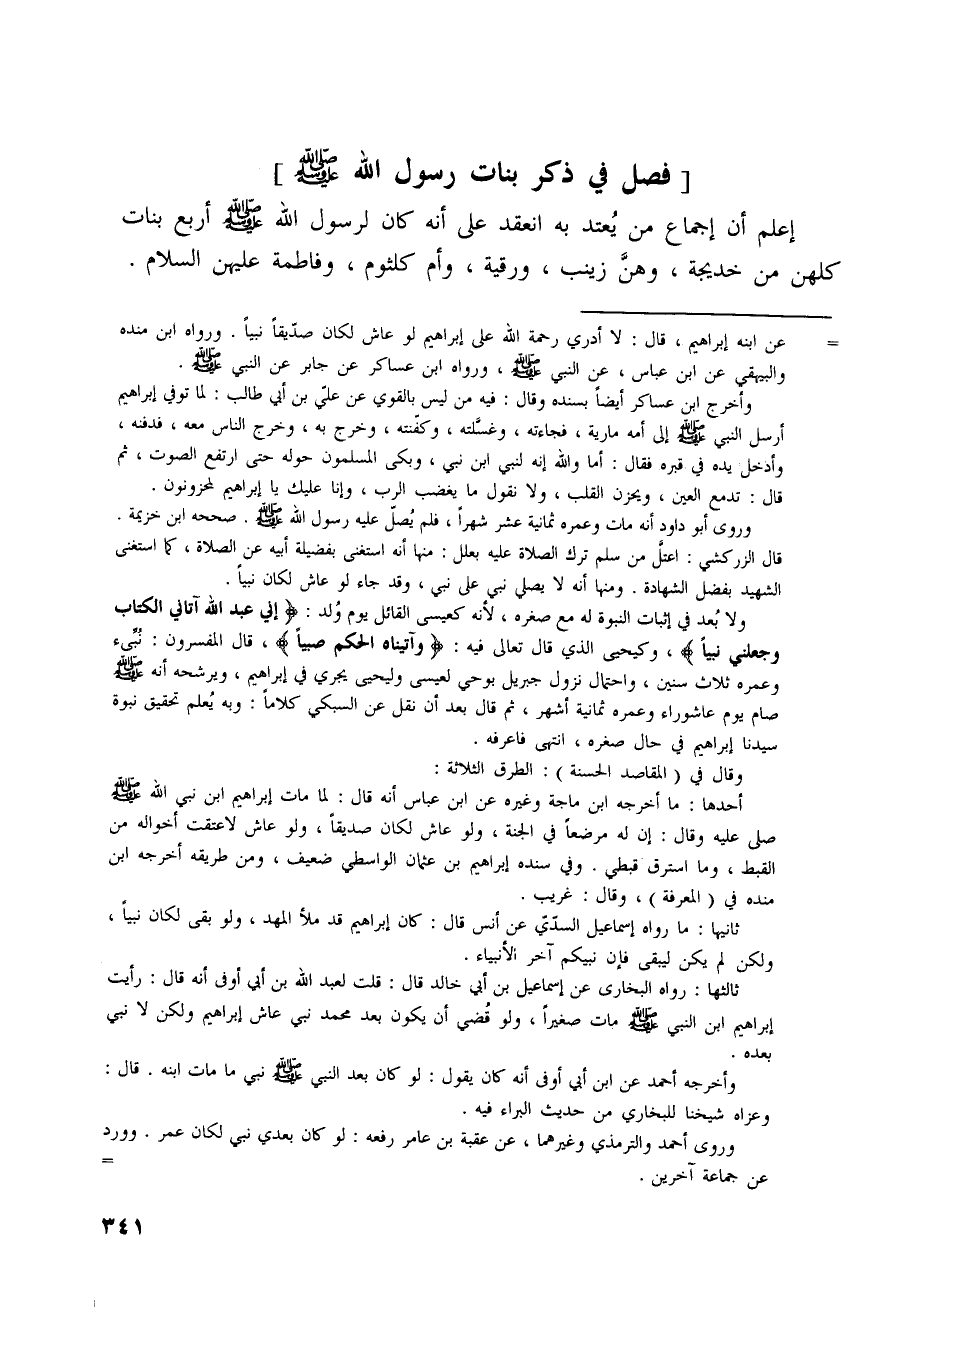 [ فصل في ذكر بنات رسول الله ﷺ ]
إعلم أن إجماع من يُعتد به انعقد على أنه كان لرسول الله ﷺ أربع بنات
كلهن من خديجة ، وهنَّ زينب ، ورقية ، وأم كلثوم ، وفاطمة عليهن السلام .
= عن ابنه إبراهيم ، قال : لا أدري رحمة الله على إبراهيم لو عاش لكان صدّيقاً نبياً . ورواه ابن منده
والبيهقي عن ابن عباس ، عن النبي ﷺ ، ورواه ابن عساكر عن جابر عن النبي ﷺ .
وأخرج ابن عساكر أيضاً بسنده وقال : فيه من ليس بالقوي عن عليّ بن أبي طالب : لما توفي إبراهيم
أرسل النبي ﷺ إلى أمه مارية ، فجاءته ، وغسَّلته ، وكفّنته ، وخرج به ، وخرج الناس معه ، فدفنه ،
وأدخل يده في قبره فقال : أما والله إنه لنبي ابن نبي ، وبكى المسلمون حوله حتى ارتفع الصوت ، ثم
قال : تدمع العين ، ويحزن القلب ، ولا نقول ما يغضب الرب ، وإنا عليك يا إبراهيم لمحزونون .
وروى أبو داود أنه مات وعمره ثمانية عشر شهراً ، فلم يُصلّ عليه رسول الله ﷺ . صححه ابن خزيمة .
قال الزركشي : اعتلَّ من سلم ترك الصلاة عليه بعلل : منها أنه استغنى بفضيلة أبيه عن الصلاة ، كما استغنى
الشهيد بفضل الشهادة . ومنها أنه لا يصلي نبي على نبي ، وقد جاء لو عاش لكان نبياً .
ولا بُعد في إثبات النبوة له مع صغره ، لأنه كعيسى القائل يوم وُلد : ﴿ إني عبد الله آتاني الكتاب
وجعلني نبياً ﴾ ، وكيحيى الذي قال تعالى فيه : ﴿ وآتيناه الحكم صبياً ﴾ ، قال المفسرون : نُبِّىء
وعمره ثلاث سنين ، واحتمال نزول جبريل بوحي لعيسى وليحيى يجري في إبراهيم ، ويرشحه أنه ﷺ
صام يوم عاشوراء وعمره ثمانية أشهر ، ثم قال بعد أن نقل عن السبكي كلاماً : وبه يُعلم تحقيق نبوة
سيدنا إبراهيم في حال صغره ، انتهى فاعرفه .
وقال في ( المقاصد الحسنة ) : الطرق الثلاثة :
أحدها : ما أخرجه ابن ماجة وغيره عن ابن عباس أنه قال : لما مات إبراهيم ابن نبي الله ﷺ
صلى عليه وقال : إن له مرضعاً في الجنة ، ولو عاش لكان صديقاً ، ولو عاش لاعتقت أخواله من
القبط ، وما استرق قبطي . وفي سنده إبراهيم بن عثمان الواسطي ضعيف ، ومن طريقه أخرجه ابن
منده في ( المعرفة ) ، وقال : غريب .
ثانيها : ما رواه إسماعيل السدّيّ عن أنس قال : كان إبراهيم قد ملأ المهد ، ولو بقى لكان نبياً ،
ولكن لم يكن ليبقى فإن نبيكم آخر الأنبياء .
ثالثها : رواه البخارى عن إسماعيل بن أبي خالد قال : قلت لعبد الله بن أبي أوفى أنه قال : رأيت
إبراهيم ابن النبي ﷺ مات صغيراً ، ولو قُضي أن يكون بعد محمد نبي عاش إبراهيم ولكن لا نبي
بعده .
وأخرجه أحمد عن ابن أبي أوفى أنه كان يقول : لو كان بعد النبي ﷺ نبي ما مات ابنه . قال :
وعزاه شيخنا للبخاري من حديث البراء فيه .
وروى أحمد والترمذي وغيرهما ، عن عقبة بن عامر رفعه : لو كان بعدي نبي لكان عمر . وورد
عن جماعة آخرين . =
٣٤١